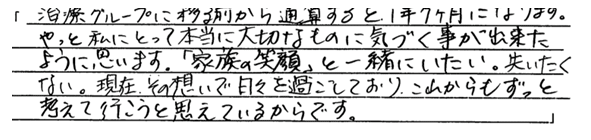 「治療グループに移る前から通算すると、1年7ヶ月になります。
やっと私にとって本当に大切なものに気づく事が出来た
ように思います。「家族の笑顔」と一緒にいたい。失いたく
ない。現在、その想いで日々を過ごしており、これからもずっと
考えて行こうと思えているからです。」